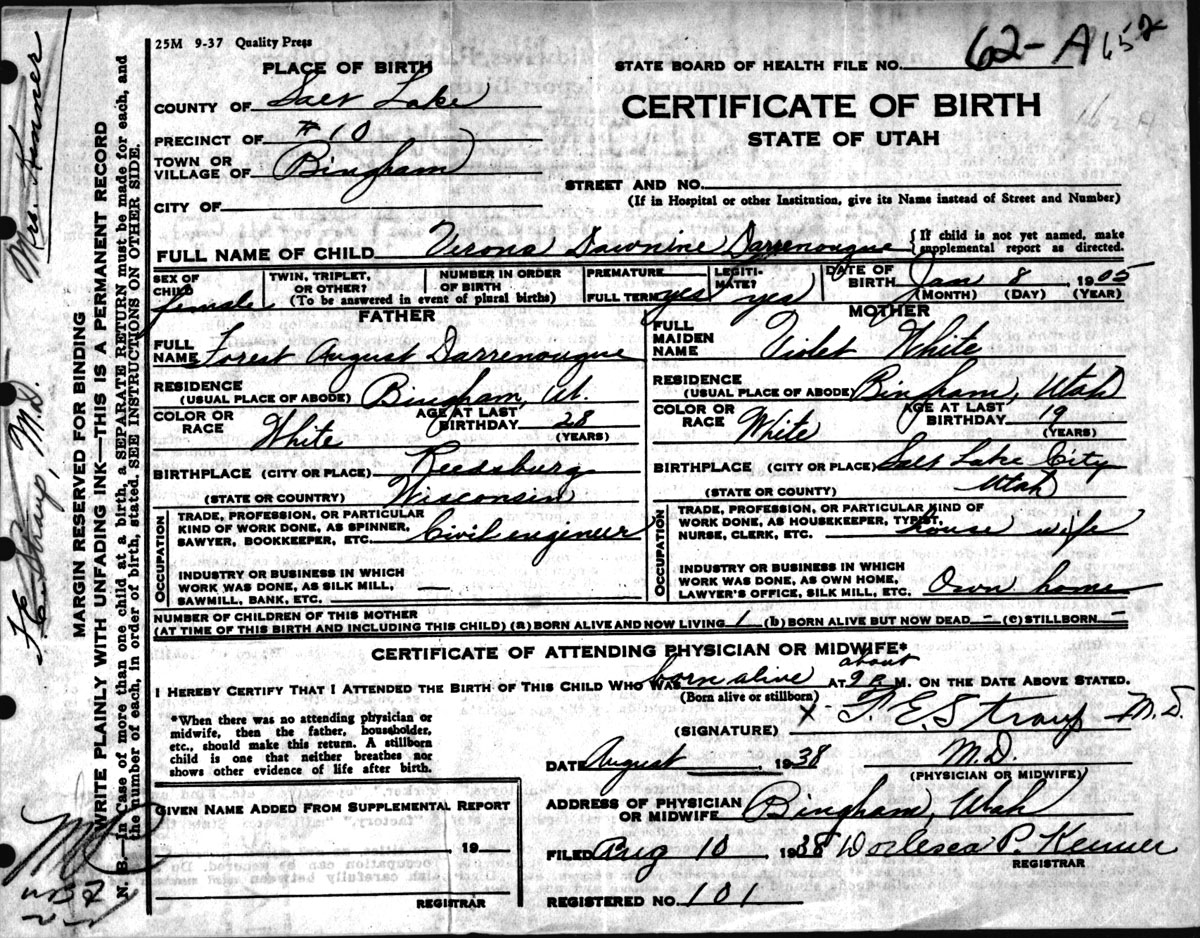 25M 9-37 Quality Press
PLACE OF BIRTH
COUNTY OF Salt Lake
PRECINCT OF #10
TOWN OR
VILLAGE OF Bingham
CITY OF
STATE BOARD OF HEALTH FILE NO. 62-A 652
CERTIFICATE OF BIRTH
STATE OF UTAH
162 A
STREET AND NO.
(If in Hospital or other Institution, give its Name instead of Street and Number)
FULL NAME OF CHILD Verona Dawnine Darrenougue { If child is not yet named, make
supplemental report as directed.
SEX OF
CHILD female
TWIN, TRIPLET,
OR OTHER?
NUMBER IN ORDER
OF BIRTH
(To be answered in event of plural births)
PREMATURE
FULL TERM yes
LEGITI-
MATE? yes
DATE OF
BIRTH Jan 8, 1905
(MONTH) (DAY) (YEAR)
FATHER
FULL
NAME Forest August Darrenougue
RESIDENCE
(USUAL PLACE OF ABODE) Bingham, Ut.
COLOR OR
RACE White
AGE AT LAST
BIRTHDAY 28
(YEARS)
BIRTHPLACE (CITY OR PLACE) Reedsburg
(STATE OR COUNTRY) Wisconsin
OCCUPATION
TRADE, PROFESSION, OR PARTICULAR
KIND OF WORK DONE, AS SPINNER,
SAWYER, BOOKKEEPER, ETC. Civil engineer
INDUSTRY OR BUSINESS IN WHICH
WORK WAS DONE, AS SILK MILL,
SAWMILL, BANK, ETC. —
MOTHER
FULL
MAIDEN
NAME Violet White
RESIDENCE
(USUAL PLACE OF ABODE) Bingham, Utah
COLOR OR
RACE White
AGE AT LAST
BIRTHDAY 19
(YEARS)
BIRTHPLACE (CITY OR PLACE) Salt Lake City
(STATE OR COUNTY) Utah
OCCUPATION
TRADE, PROFESSION, OR PARTICULAR KIND OF
WORK DONE, AS HOUSEKEEPER, TYPIST,
NURSE, CLERK, ETC. house wife
INDUSTRY OR BUSINESS IN WHICH
WORK WAS DONE, AS OWN HOME,
LAWYER'S OFFICE, SILK MILL, ETC. Own home
NUMBER OF CHILDREN OF THIS MOTHER
(AT TIME OF THIS BIRTH AND INCLUDING THIS CHILD) (a) BORN ALIVE AND NOW LIVING 1 (b) BORN ALIVE BUT NOW DEAD - (c) STILLBORN -
CERTIFICATE OF ATTENDING PHYSICIAN OR MIDWIFE*
I HEREBY CERTIFY THAT I ATTENDED THE BIRTH OF THIS CHILD WHO WAS born alive AT about 9 P. M. ON THE DATE ABOVE STATED.
(Born alive or stillborn)
*When there was no attending physician or
midwife, then the father, householder,
etc., should make this return. A stillborn
child is one that neither breathes nor
shows other evidence of life after birth.
X- F. E. Straup M.D.
(SIGNATURE)
DATE August 1938 M.D.
(PHYSICIAN OR MIDWIFE)
ADDRESS OF PHYSICIAN
OR MIDWIFE Bingham, Utah
FILED Aug 10, 1938 P. Kenner
REGISTRAR
REGISTERED NO. 101
GIVEN NAME ADDED FROM SUPPLEMENTAL REPORT
19
REGISTRAR
MARGIN RESERVED FOR BINDING
WRITE PLAINLY WITH UNFADING INK—THIS IS A PERMANENT RECORD
N. B.—In Case of more than one child at a birth, a SEPARATE RETURN must be made for each, and
the number of each, in order of birth, stated. SEE INSTRUCTIONS ON OTHER SIDE.
F. E. Straup, M.D.
Mrs. Kenner